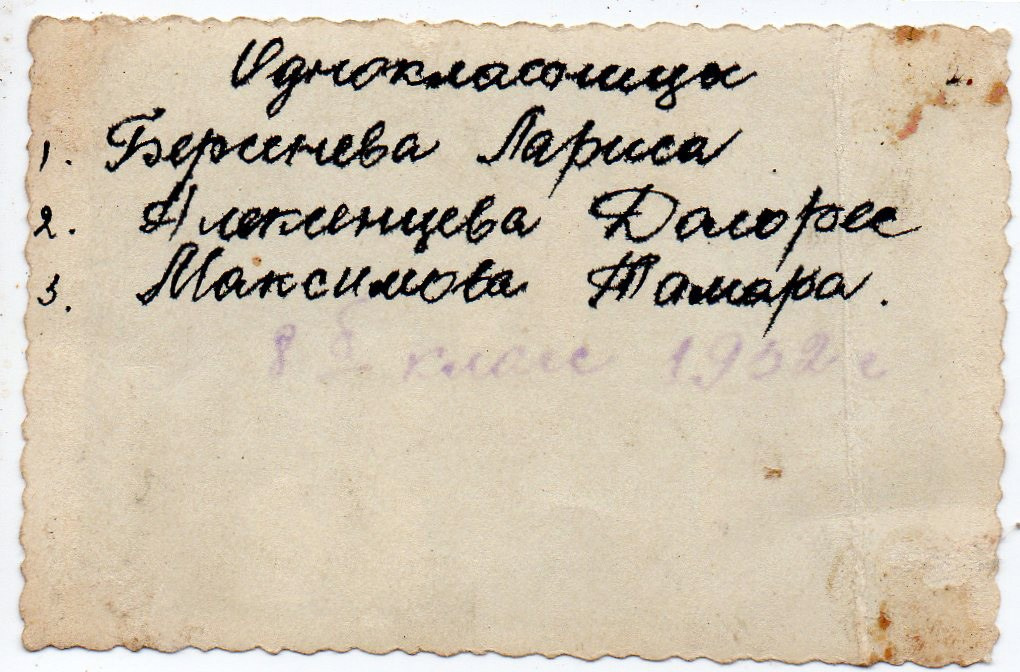 Одноклассницы
1. Берсенева Лариса
2. Алексенцева Долорес
3. Максимова Тамара.
8 Б класс 1952 г